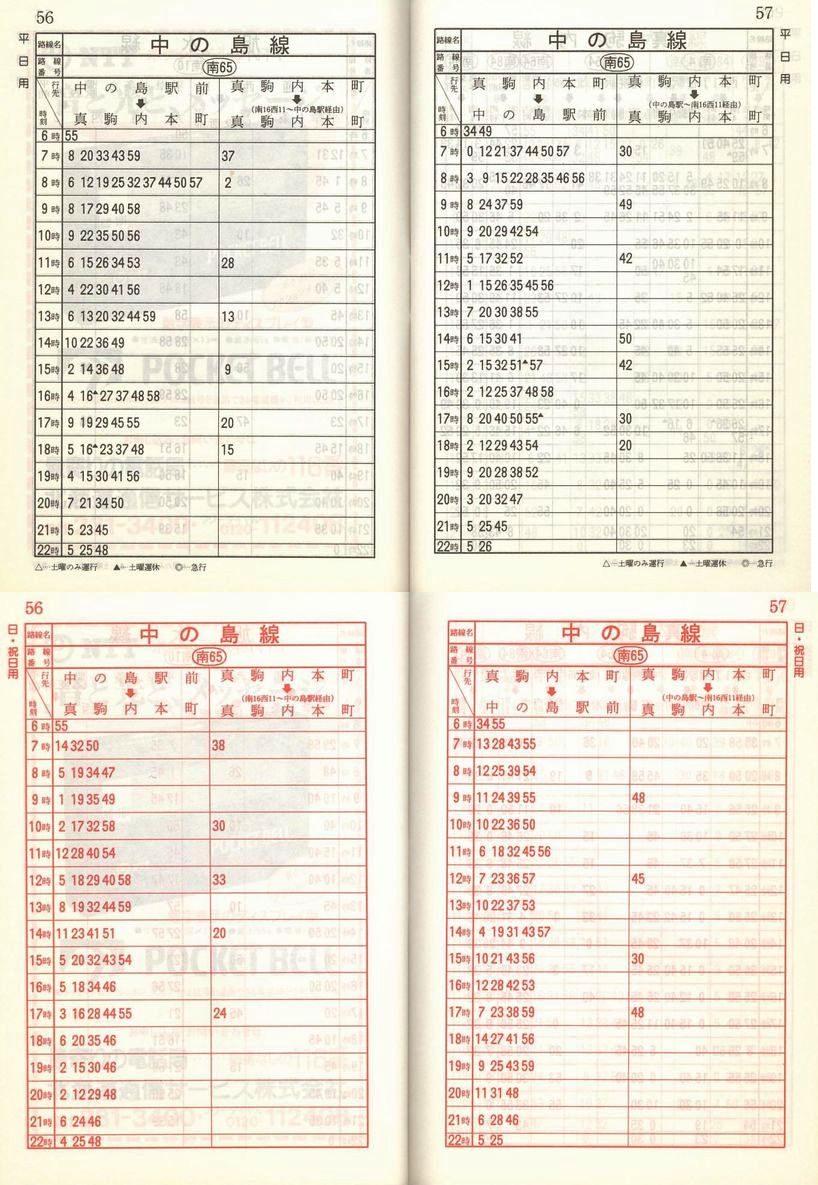 56
平日用
路線名 中の島線
路線番号 南65
行先 時刻 中の島駅前 真駒内本町 真駒内本町 (南16西11〜中の島駅経由) 真駒内本町
6時 55
7時 8 20 33 43 59 37
8時 6 12 19 25 32 37 44 50 57 2
9時 8 17 29 40 58
10時 9 22 35 50 56
11時 6 15 26 34 53 28
12時 4 22 30 41 56
13時 6 13 20 32 44 59 13
14時 10 22 36 49
15時 2 14 36 48 9
16時 4 16▲27 37 48 58
17時 9 19 29 45 55 20
18時 5 16▲23 37 48 15
19時 4 15 30 41 56
20時 7 21 34 50
21時 5 23 45
22時 5 25 48
△…土曜のみ運行 ▲…土曜運休 ◎…急行
57
平日用
路線名 中の島線
路線番号 南65
行先 時刻 真駒内本町 中の島駅前 真駒内本町 (中の島駅〜南16西11経由) 真駒内本町
6時 34 49
7時 0 12 21 37 44 50 57 30
8時 3 9 15 22 28 35 46 56
9時 8 24 37 59 49
10時 9 20 29 42 54
11時 5 17 32 52 42
12時 1 15 26 35 45 56
13時 7 20 30 38 55
14時 6 15 30 41 50
15時 2 15 32 51▲57 42
16時 2 12 25 37 48 58
17時 8 20 40 50 55▲ 30
18時 2 12 29 43 54 20
19時 9 20 28 38 52
20時 3 20 32 47
21時 5 25 45
22時 5 26
△…土曜のみ運行 ▲…土曜運休 ◎…急行
56
日・祝日用
路線名 中の島線
路線番号 南65
行先 時刻 中の島駅前 真駒内本町 真駒内本町 (南16西11〜中の島駅経由) 真駒内本町
6時 55
7時 14 32 50 38
8時 5 19 34 47
9時 1 19 35 49
10時 2 17 32 58 30
11時 12 28 40 54
12時 5 18 29 40 58 33
13時 8 19 32 44 59
14時 11 23 41 51 20
15時 5 20 32 43 54
16時 5 18 34 46
17時 3 16 28 44 55 24
18時 6 20 35 46
19時 2 15 30 46
20時 2 12 29 48
21時 6 24 46
22時 4 25 48
57
日・祝日用
路線名 中の島線
路線番号 南65
行先 時刻 真駒内本町 中の島駅前 真駒内本町 (中の島駅〜南16西11経由) 真駒内本町
6時 34 55
7時 13 28 43 55
8時 12 25 39 54
9時 11 24 39 55 48
10時 10 22 36 50
11時 6 18 32 45 56
12時 7 23 36 57 45
13時 10 22 37 53
14時 4 19 31 43 57
15時 10 21 43 56 30
16時 12 28 42 53
17時 7 23 38 59 48
18時 14 27 41 56
19時 9 25 43 59
20時 11 31 48
21時 6 28 46
22時 5 25